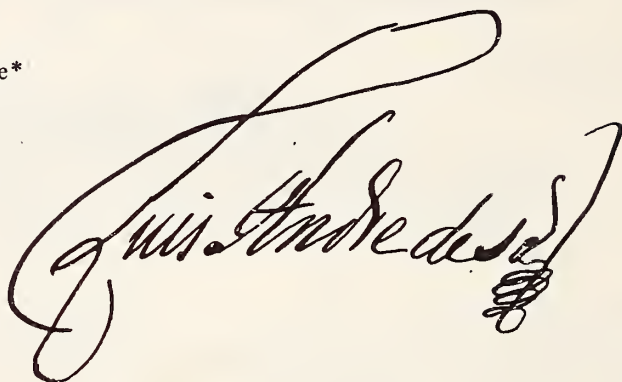 e*
Luis Andre de sá